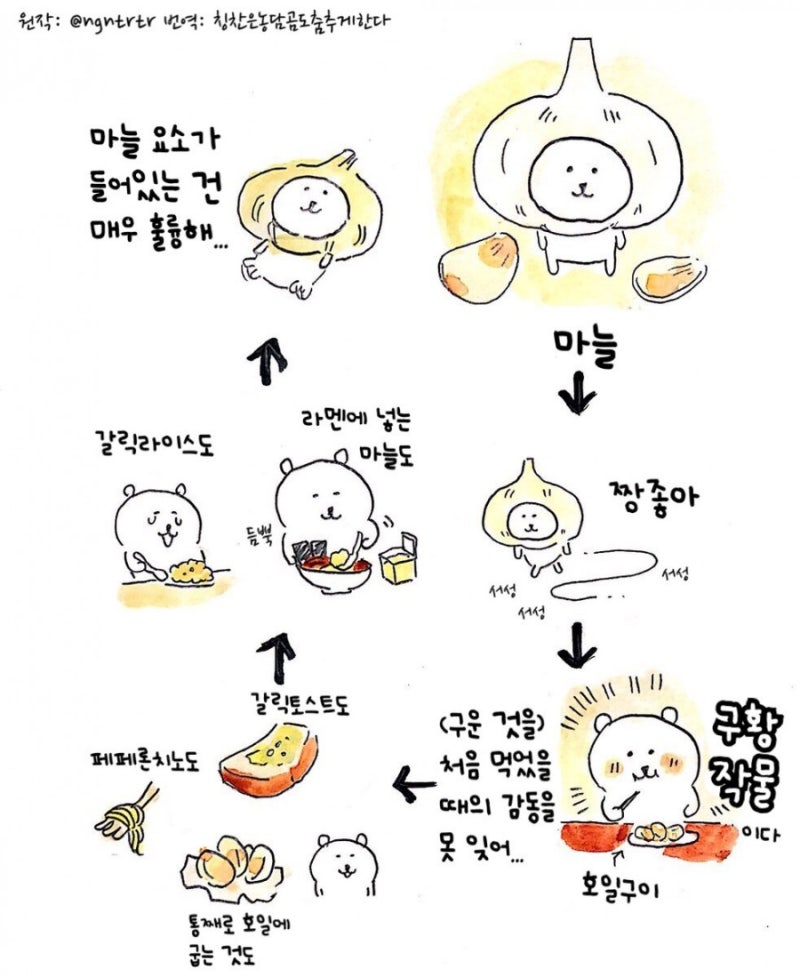 원작: @ngntrtr 번역: 칭찬은농담곰도춤추게한다
마늘
짱좋아
서성
서성
서성
구황
작물
이다
호일구이
(구운 것을)
처음 먹었을
때의 감동을
못 잊어...
갈릭토스트도
페페론치노도
통째로 호일에
굽는 것도
라멘에 넣는
마늘도
듬뿍
갈릭라이스도
마늘 요소가
들어있는 건
매우 훌륭해...